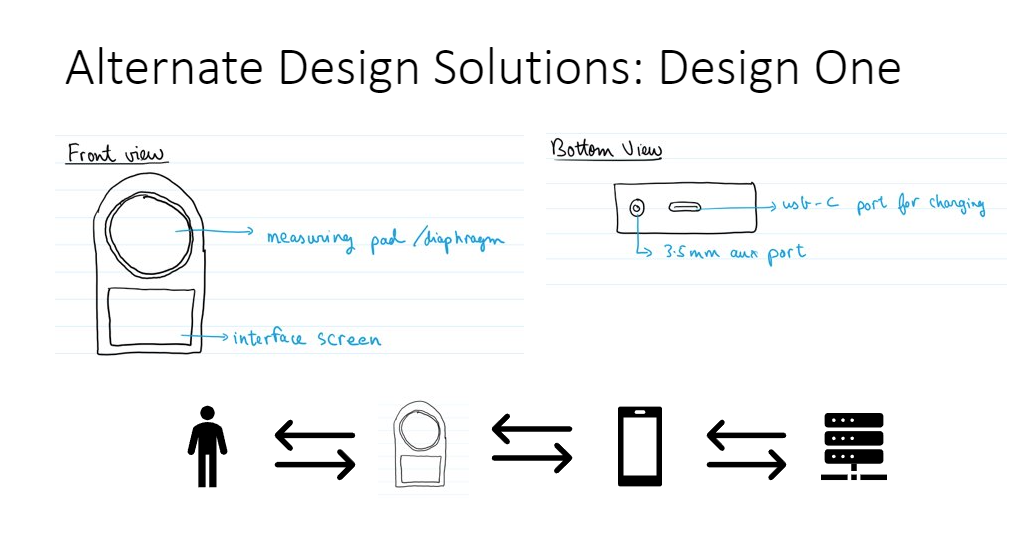 Alternate Design Solutions: Design One
Front view
measuring pad/diaphragm
interface screen
Bottom View
usb-c port for charging
3.5mm aux port